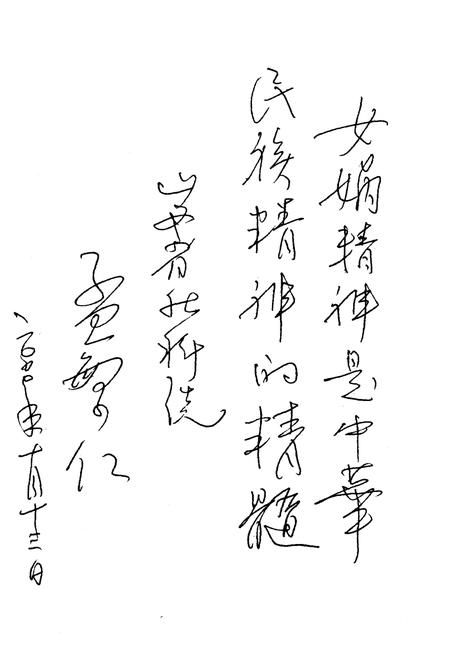 女娲精神是中華
民族精神的精髓
山西省社科院
孟繁仁
年十月十三日